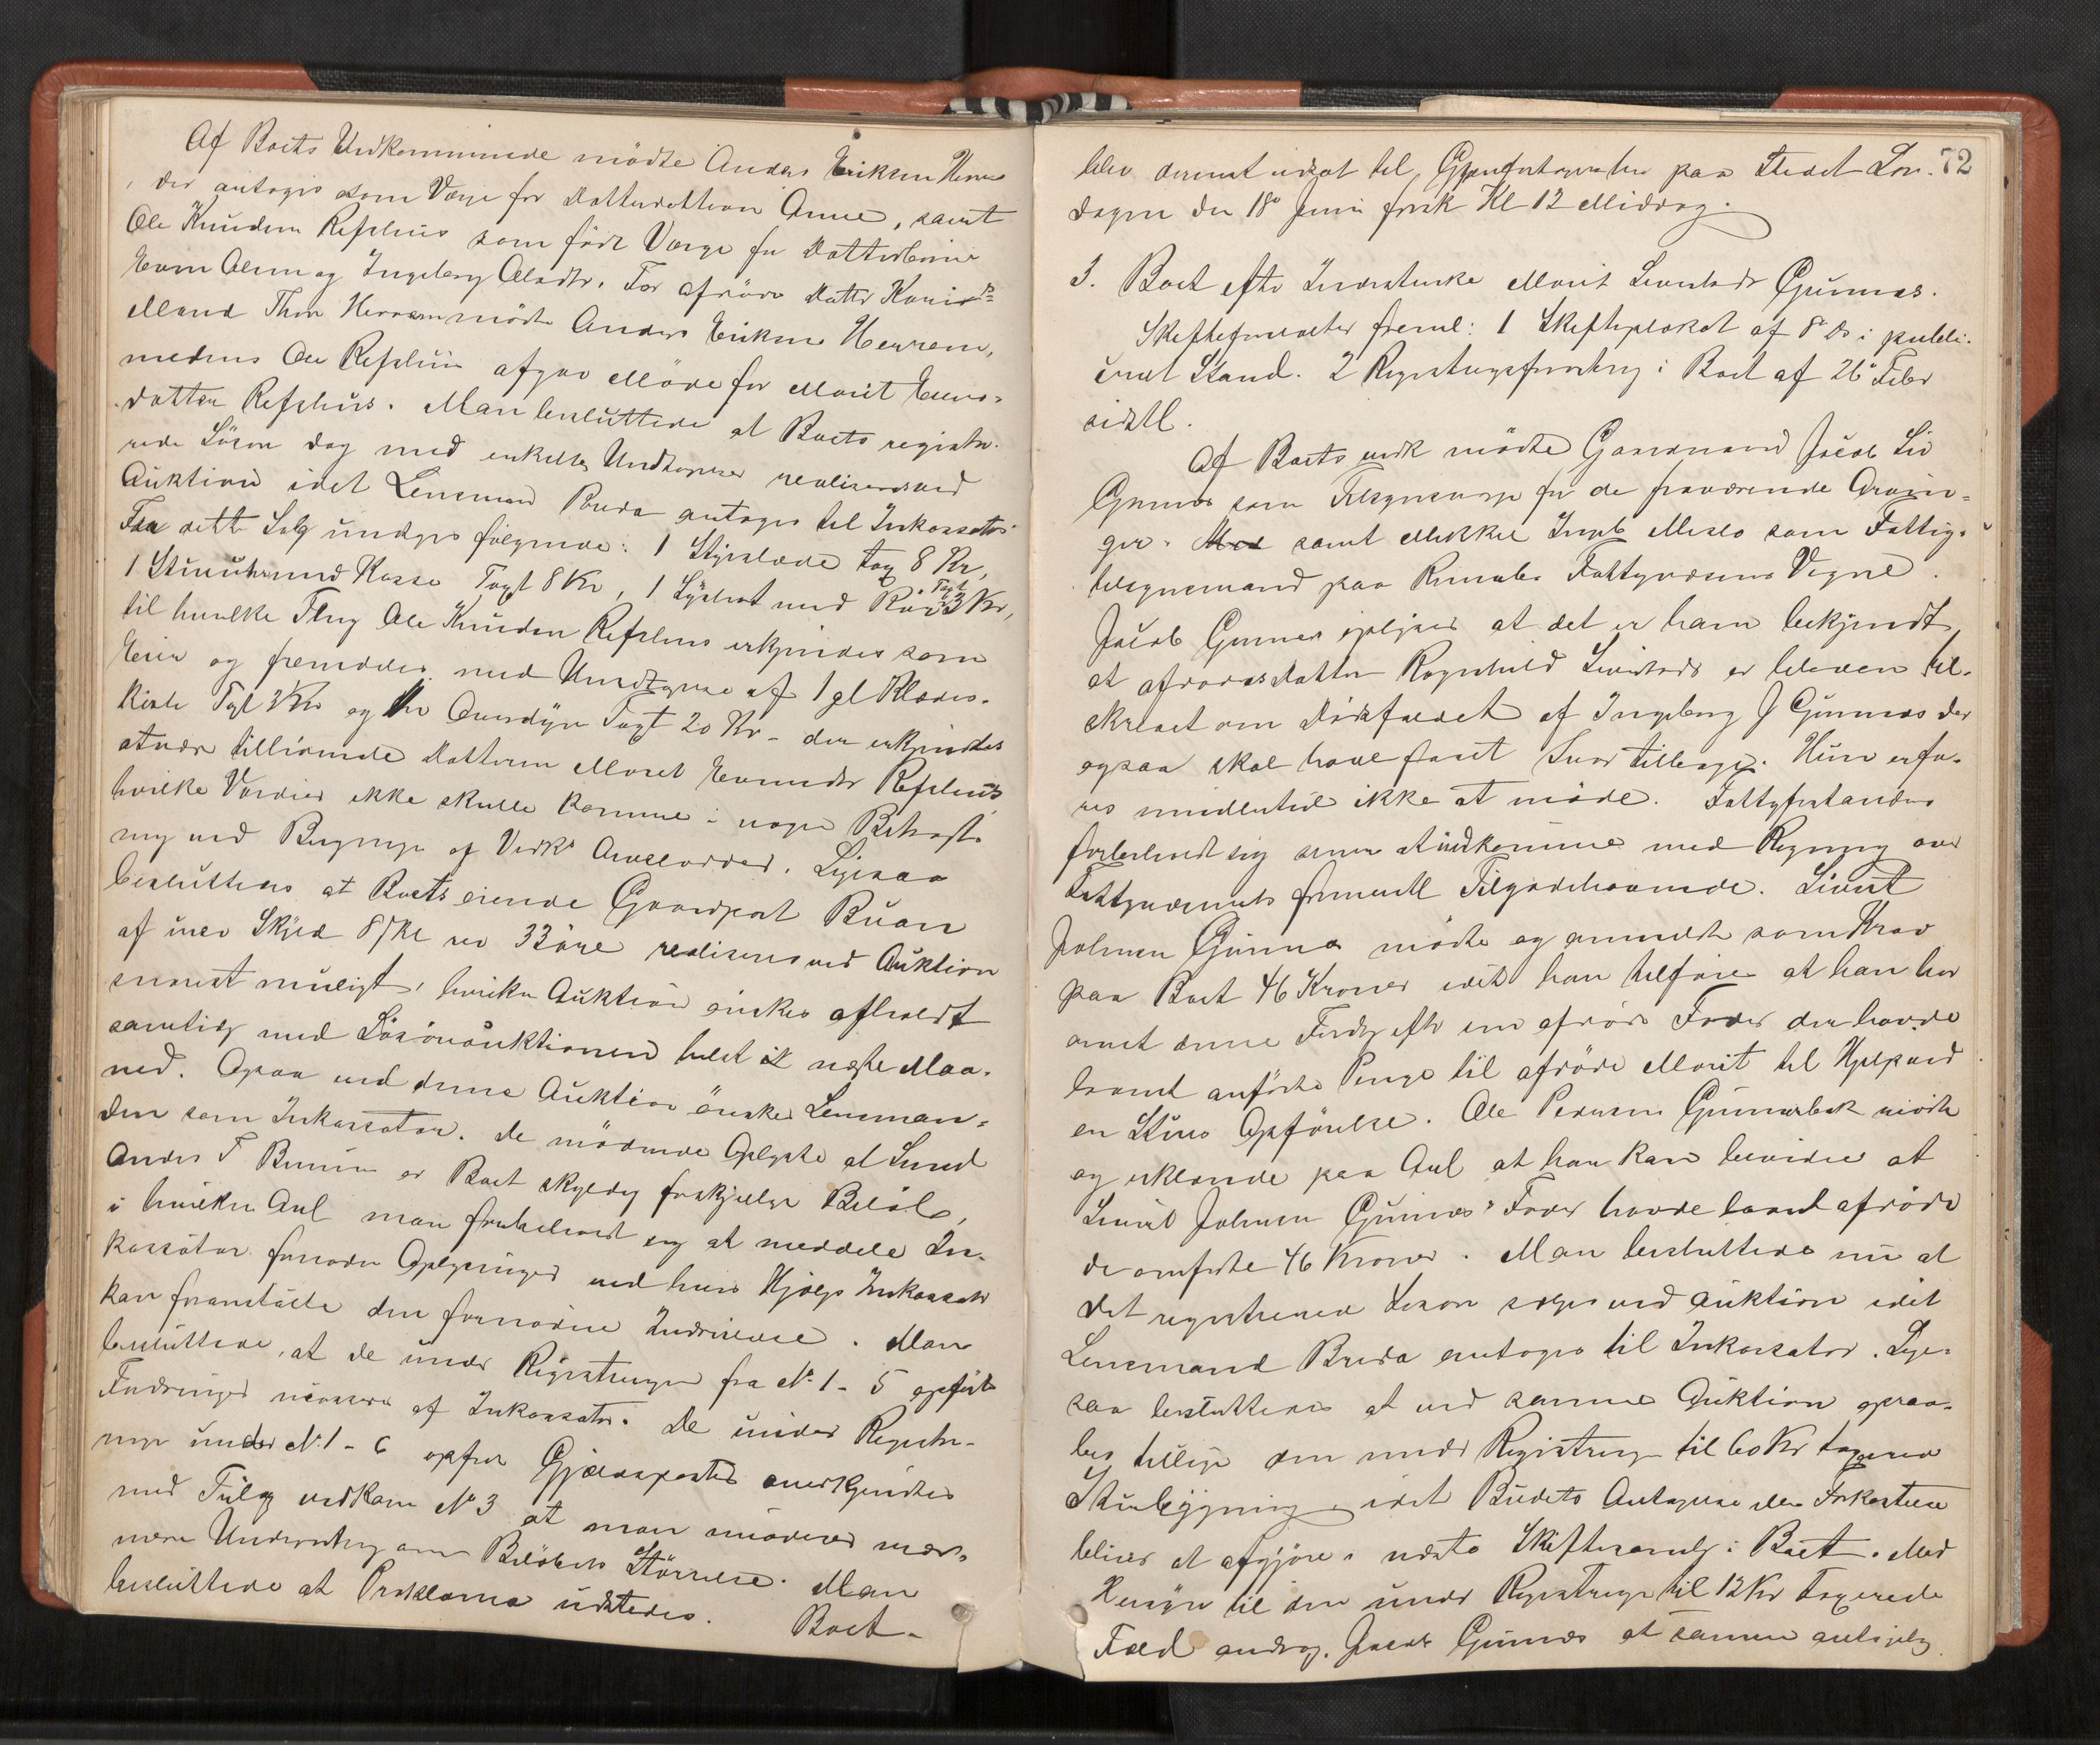 Af Boets Vedkommende mødte Anders Eriksen Herrem
, der antoges som Værge for Datterdatteren Anne, samt
Ole Knudsen Refshus som født Værge for Datterbørn
Even Olsen og Ingeborg Olsdtr. For afdøde Datter Karis
Mand Thor Herrem mødte Anders Eriksen Herrem,
medens Ole Refshus afgav Møde for Marit Evens-
datter Refshus. Man besluttede at Boets registre-
rede Løsøre dog med enkelte Undtagelser realiseres ved
Auktion idet Lensmand Breda antages til Inkassator
Fra dette Salg undtages følgende: 1 Slæde tax 8 Kr,
1 Stueuhr med Kasse Taxt 8 Kr, 1 med Taxt 3 Kr,
til hvilke Ting Ole Knudsen Refshus erkjendes som
Eier og fremdeles med Undtagelse af 1 gl Klædes-
kiste Taxt 2 Kr og Taxt 20 Kr - der erkjendtes
at være tilhørende Datteren Marit Evensdtr Refshus
hvilke Værdier ikke skulle komme i nogen Betragt-
ning ved Beregning af Vedk Arvelodder. Ligesaa
besluttedes at Boets eiende Gaardpart Buan
af urev Skyld 87 ny 33 Øre realiseres ved Auktion
snarest muligt, hvilken Auktion ønskes afholdt
samtidig med Løsøreauktionen helst i næste Maa-
ned. Ogsaa ved denne Auktion ønskes Lensman-
den som Inkassator. De mødende Oplyste at
Anders T er Boet skyldig forskjellige Beløb,
i hvilken Anl man forbeholdt sig at meddele In-
kassator fornødne Oplysninger ved hvis Hjælp Inkassator
kan foranstalte den fornødne Inddrivelse. Man
besluttede, at de under Registreringen fra No 1 - 5 opførte
Fordringer af Inkassator. De under Registre-
ringen under No 1 - 6 opførte Gjældsposter anerkjendtes
med Tillæg vedkom No 3 at man nær-
mere Underretning om Beløbets Størrelse. Man
besluttede at Proklama udstedes. Boet

72
blev dernæst udsat til Gjenforetagelse paa Stedet
dagen den 18de Juni førstk Kl 12 Middag.
3. Boet efter Inderstenke Marit Sivertsdr Gunnes.
Skifteforvalter freml: 1 Skifteplakat af 8de ds i publi-
ceret Stand. 2 Registreringsforretning i Boet af 26de Febr
sidstl.
Af Boets vedk mødte Gaardmand Jacob
Gunnes som Tilsynsværge for de fraværende Arvin-
ger. samt Mikkel Ingeb som Fattig-
tilsynsmand paa Fattigvæsens Vegne.
Jacob Gunnes oplyser at det er ham bekjendt,
at afdødes datter Ragnhild Sivertsdr er bleven til-
skrevet om Dødsfaldet af Ingeborg J Gunnes der
ogsaa skal have faaet Svar tilbage. Hun erfa-
res imidlertid ikke at møde. Fattigforstanderen
forbeholdt sig senere at indkomme med Regning over
Fattigvæsenets formentl Tilgodehavende. Sivert
Johnsen Gunnes mødte og anmeldte som Krav
paa Boet 46 Kroner idet han tilføier at han har
arvet denne Fordring efter sin afdøde Fader der havde
laant anførte Penge til afdøde Marit til Hjelp ved
en Stues Opførelse. Ole Pedersen Gunnesbak mødte
og erklærede paa Anl at han kan bevidne at
Sivert Johnsen Gunnes' Fader havde laant afdøde
de anførte 46 Kroner. Man besluttede nu at
det registrerede Løsøre sælges ved Auktion idet
Lensmand Breda antoges til Inkassator. Lige-
saa besluttedes at ved samme Auktion opraa-
bes tillige den under Registrering til 60 Kr taxerede
Stuebygning, idet Budets Antagelse eller Forkastelse
bliver at afgjøre i næste Skiftesamling i Boet. Med
Hensyn til den under Registreringen til 12 Kr taxerede
Fæld androg Jacob Gunnes at samme